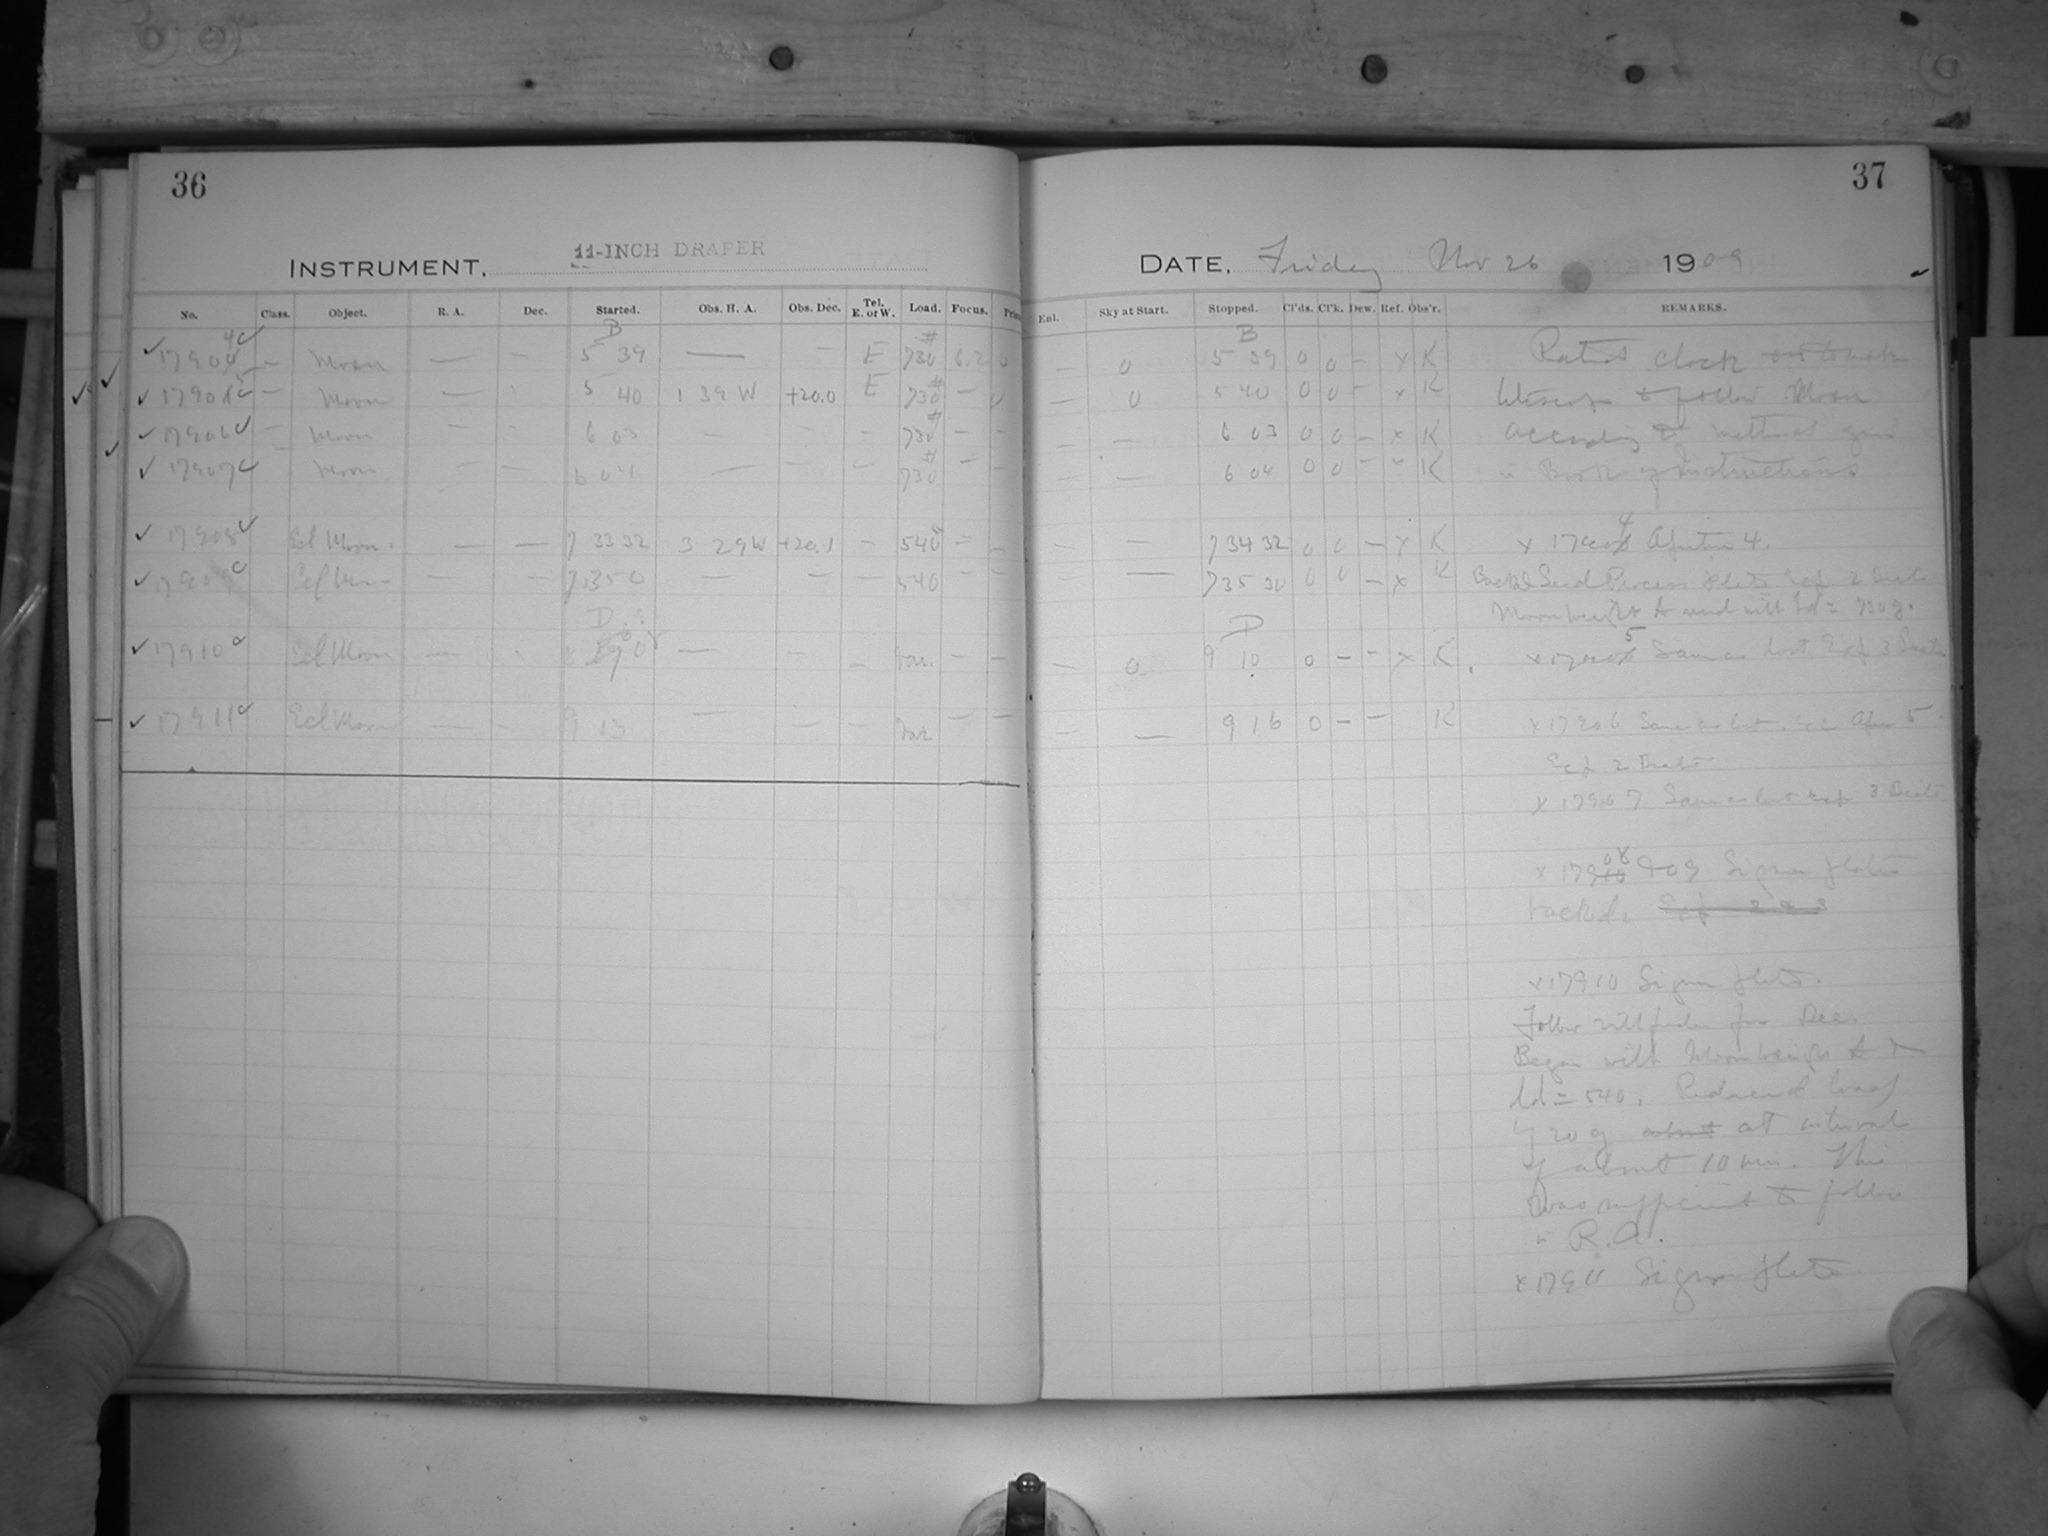 36
37
INSTRUMENT. 11-INCH DRAPER
DATE. Friday Nov 26 1909
No. Class. Object. R. A. Dec. Started. Obs. H. A. Obs. Dec. Tel. E. or W. Load. Focus. Enl. Sky at Start. Stopped. Cl'ds. Cl'k. Dew. Ref. Obs'r. REMARKS.
B # B
17904 — Moon — — 5 39 — — E 730 6.2 0 — 0 5 39 0 0 — x K clock
17905 — Moon — 5 40 1 39 W +20.0 E 730 # — 0 — 0 5 40 0 0 — x K to follow Moon
17906 — Moon — — 6 03 — — — 730 # — — — — 6 03 0 0 — x K according to method
17907 Moon — — 6 04 — — — 730 # — — — — 6 04 0 0 — – K in Book of Instructions
17908 Ecl Moon. — — 7 33 32 3 29 W +20.1 — 540 — — — — 7 34 32 0 0 — x K x 17904 Aperture 4.
17909 Ecl Moon — — 7 35 0 — — — 540 — — — — 7 35 30 0 0 — x K Backed Seed Process Plate Exp 2
Moonweight A and with Ld = 730 g.
D D
17910 Ecl Moon — 9 0 — — — — — — 0 9 10 0 — — x K x 17905 Same as last Exp 3
17911 Ecl Moon — — 9 13 — — — — — — — 9 16 0 — — K x 17906 Same as last 5
Exp 2
x 17907 Same as last Exp 3
x 17908 909 Sigma Plates
backed.
x 17910 Sigma Plate.
Follow for Dec.
Began with Moonweight A
Ld = 540. Reduced load
by 20 g about at interval
of about 10 min. This
was sufficient to follow
in R.A.
x 17911 Sigma Plate